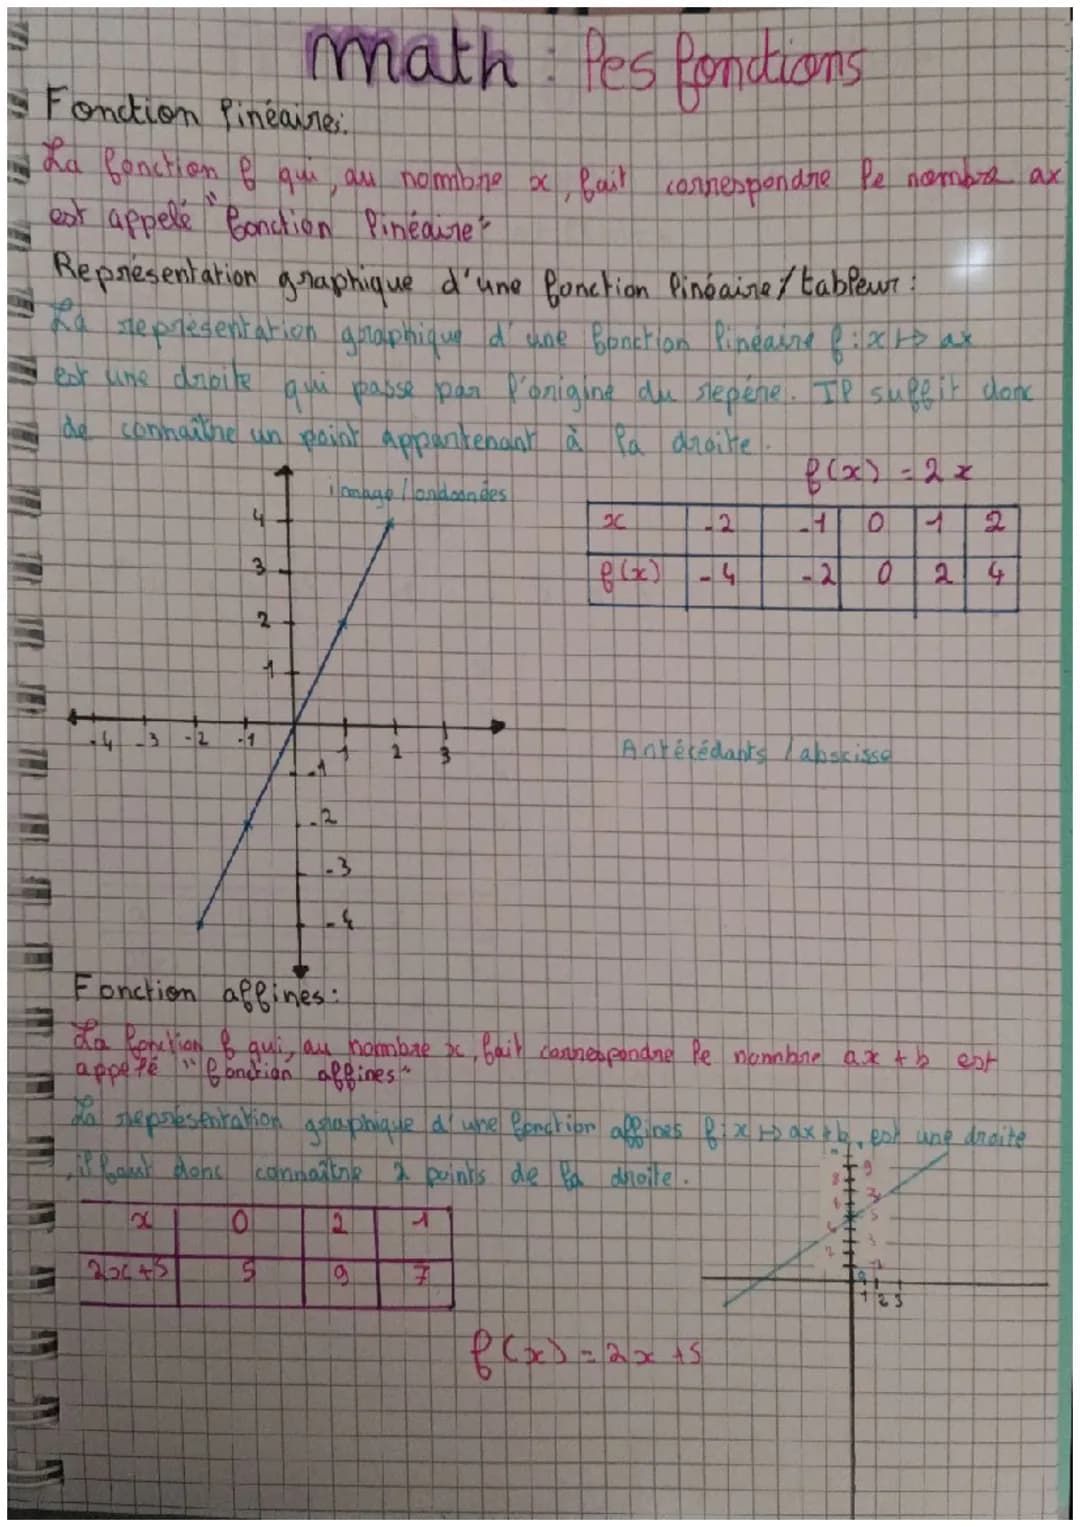 math : les fonctions
Fonction linéaires:
La fonction f qui, au nombre x, fait correspondre le nombre ax
est appelé "fonction linéaire"
Représentation graphique d'une fonction linéaire / tableur :
La représentation graphique d'une fonction linéaire f : x ↦ ax
est une droite qui passe par l'origine du repére. Il suffit donc
de connaître un point appartenant à la droite.
f(x) = 2x
image /
x -2 -1 0 1 2
f(x) -4 -2 0 2 4
4
3
2
1
-4 -3 -2 -1 1 2 3
Antécédants / abscisse
-1
-2
-3
-4
Fonction affines :
La fonction f qui, au nombre x, fait correspondre le nombre ax + b est
appelé "fonction affines"
La représentation graphique d'une fonction affines f : x ↦ ax + b, est une droite
il faut donc connaître 2 points de la droite.
x 0 2 1
2x+5 5 9 7
9
8
7
5
3
2
1 2 3
f(x) = 2x + 5